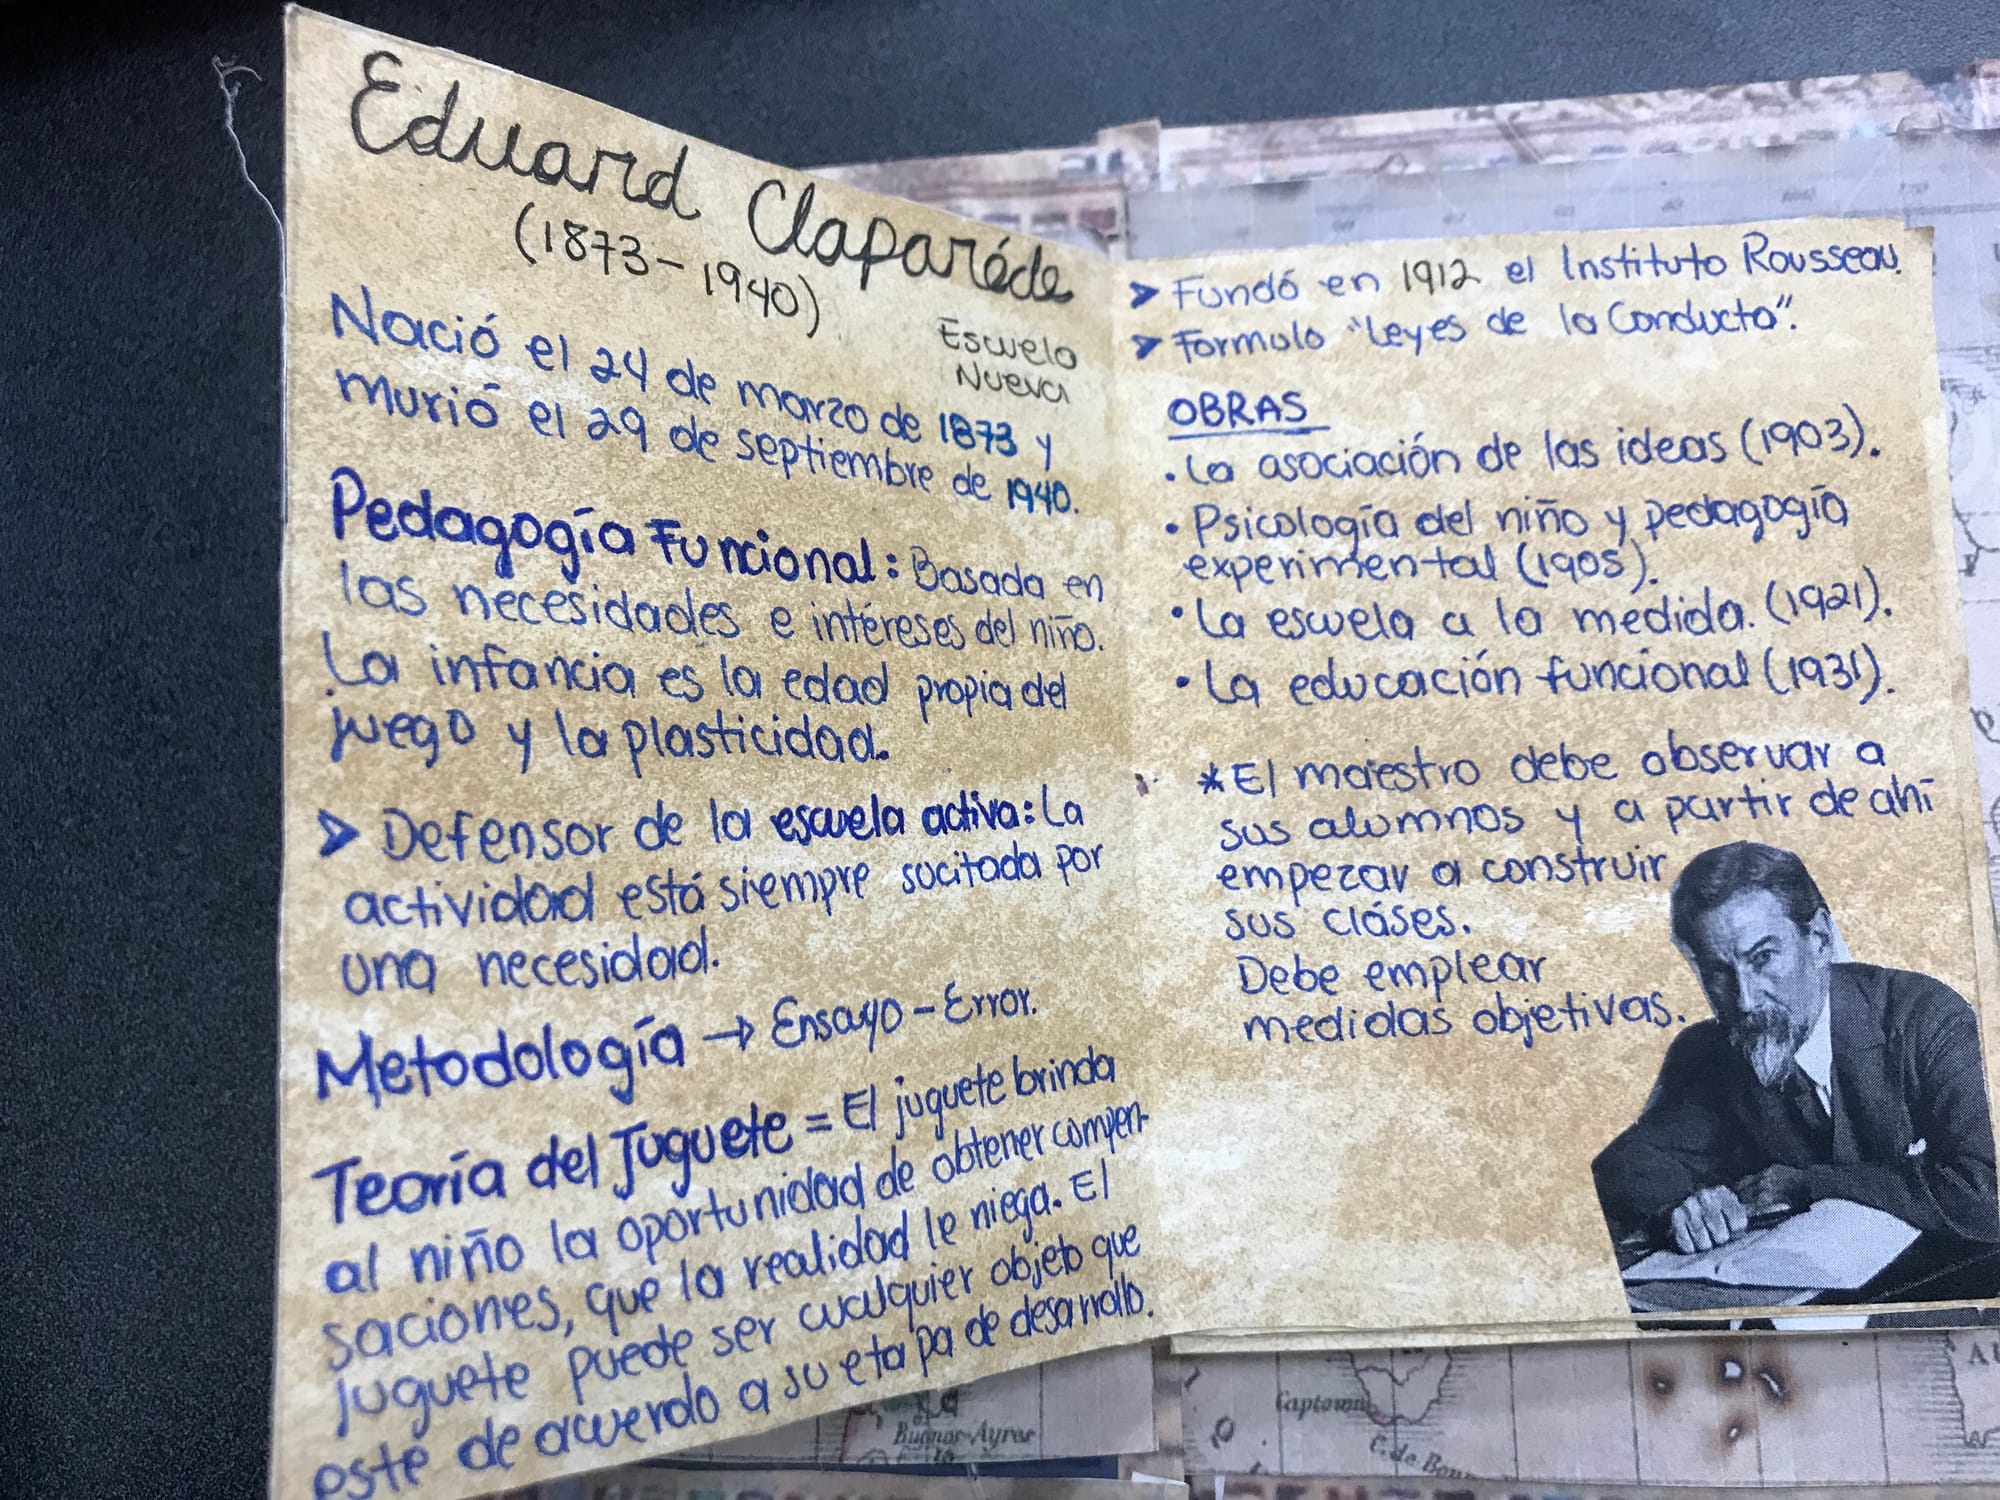 Eduard Claparéde
(1873-1940)
Escuela
Nueva
Nació el 24 de marzo de 1873 y
murió el 29 de septiembre de 1940.
Pedagogía Funcional: Basada en
las necesidades e intereses del niño.
La infancia es la edad propia del
juego y la plasticidad.
➤ Defensor de la escuela activa: La
actividad está siempre sucitada por
una necesidad.
Metodología → Ensayo - Error.
Teoría del Juguete = El juguete brinda
al niño la oportunidad de obtener compen-
saciones, que la realidad le niega. El
juguete puede ser cualquier objeto que
este de acuerdo a su etapa de desarrollo.
➤ Fundó en 1912 el Instituto Rousseau.
➤ Formulo "Leyes de la Conducta".
OBRAS
• La asociación de las ideas (1903).
• Psicología del niño y pedagogía
experimental (1905).
• La escuela a la medida. (1921).
• La educación funcional (1931).
* El maestro debe observar a
sus alumnos y a partir de ahí
empezar a construir
sus cláses.
Debe emplear
medidas objetivas.
Buenos-Ayres
Captown
C. de Bon